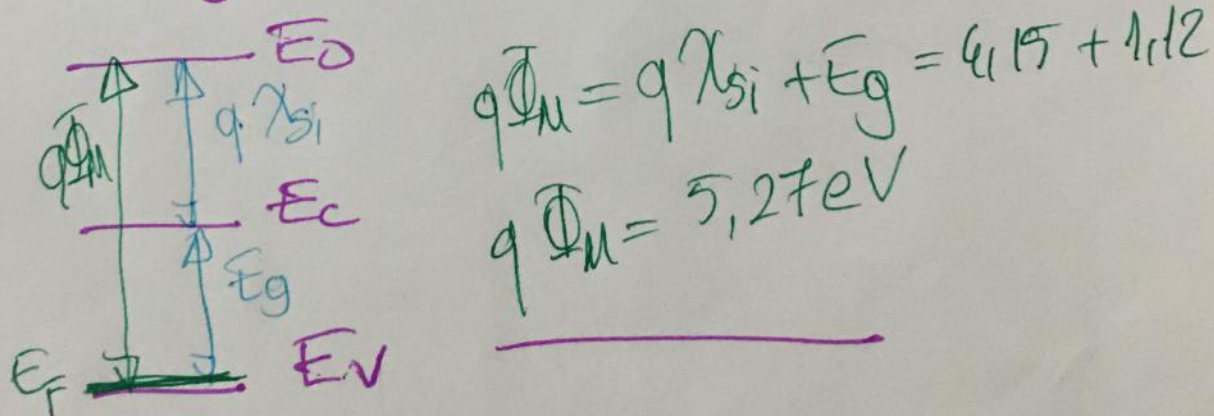 E0
qΦM
q χSi
EC
Eg
EF
EV
qΦM = q χSi + Eg = 4,15 + 1,12
qΦM = 5,27eV